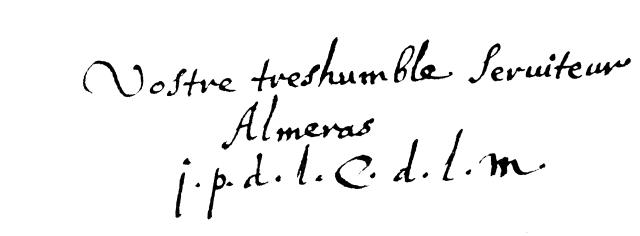 Vostre treshumble seruiteur
Almeras
j. p. d. l. C. d. l. m.